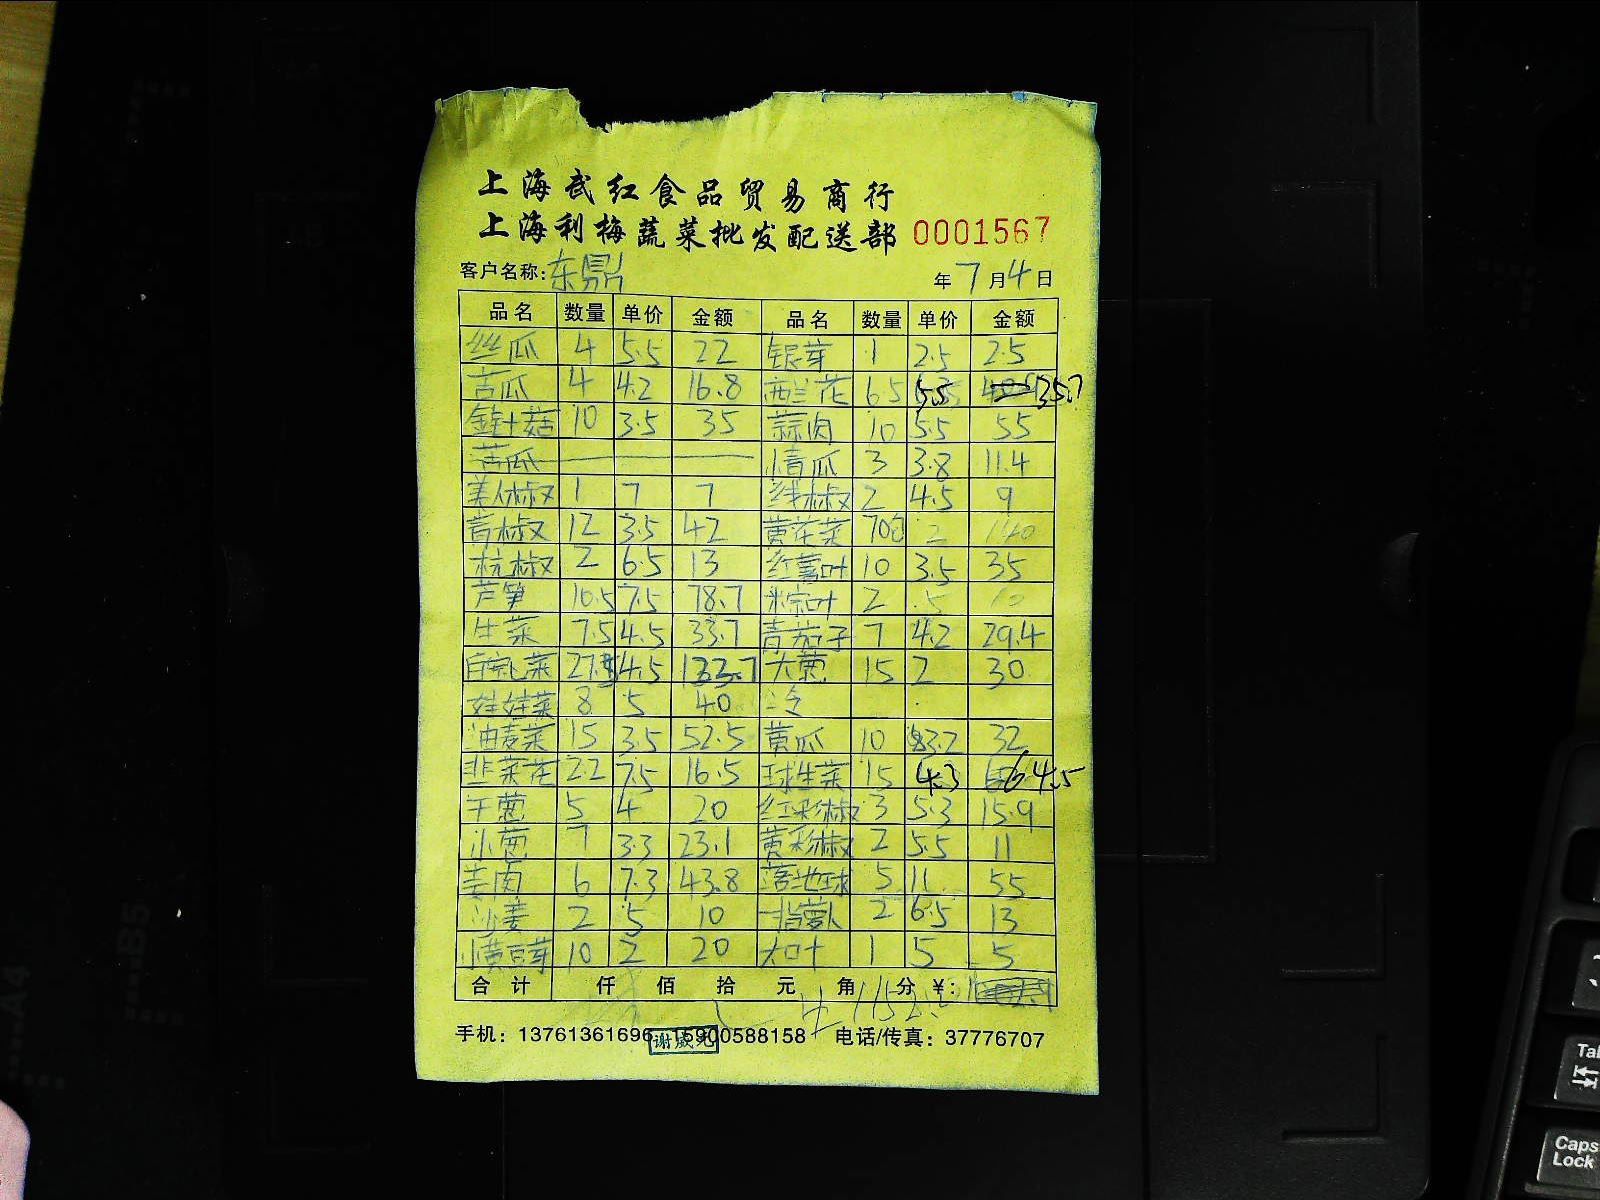 上海武红食品贸易商行
上海利梅蔬菜批发配送部 0001567
客户名称:东鼎 年7月4日
品名 数量 单价 金额 品名 数量 单价 金额
丝瓜 4 5.5 22 银芽 1 2.5 2.5
苦瓜 4 4.2 16.8 西兰花 6.5 5.5 35.7
金针菇 10 3.5 35 蒜肉 10 5.5 55
苦瓜 小青瓜 3 3.8 11.4
美人椒 1 7 7 线椒 2 4.5 9
青椒 12 3.5 42 黄花菜 70包 2 140
杭椒 2 6.5 13 红薯叶 10 3.5 35
芦笋 10.5 7.5 78.7 粽叶 2 5 10
生菜 7.5 4.5 33.7 青茄子 7 4.2 29.4
白菜 4.5 大葱 15 2 30
娃娃菜 8 5 40
油麦菜 15 3.5 52.5 黄瓜 10 3.2 32
韭菜花 2.2 7.5 16.5 球生菜 15 4.3 64.5
干葱 5 4 20 红彩椒 3 5.3 15.9
小葱 7 3.3 23.1 黄彩椒 2 5.5 11
姜肉 6 7.3 43.8 落地球 5 11 55
沙姜 2 5 10 指萝卜 2 6.5 13
小黄豆芽 10 2 20 1 5 5
合计 仟 佰 拾 元 角 分 ¥:
手机：13761361696 15900588158 电话/传真：37776707